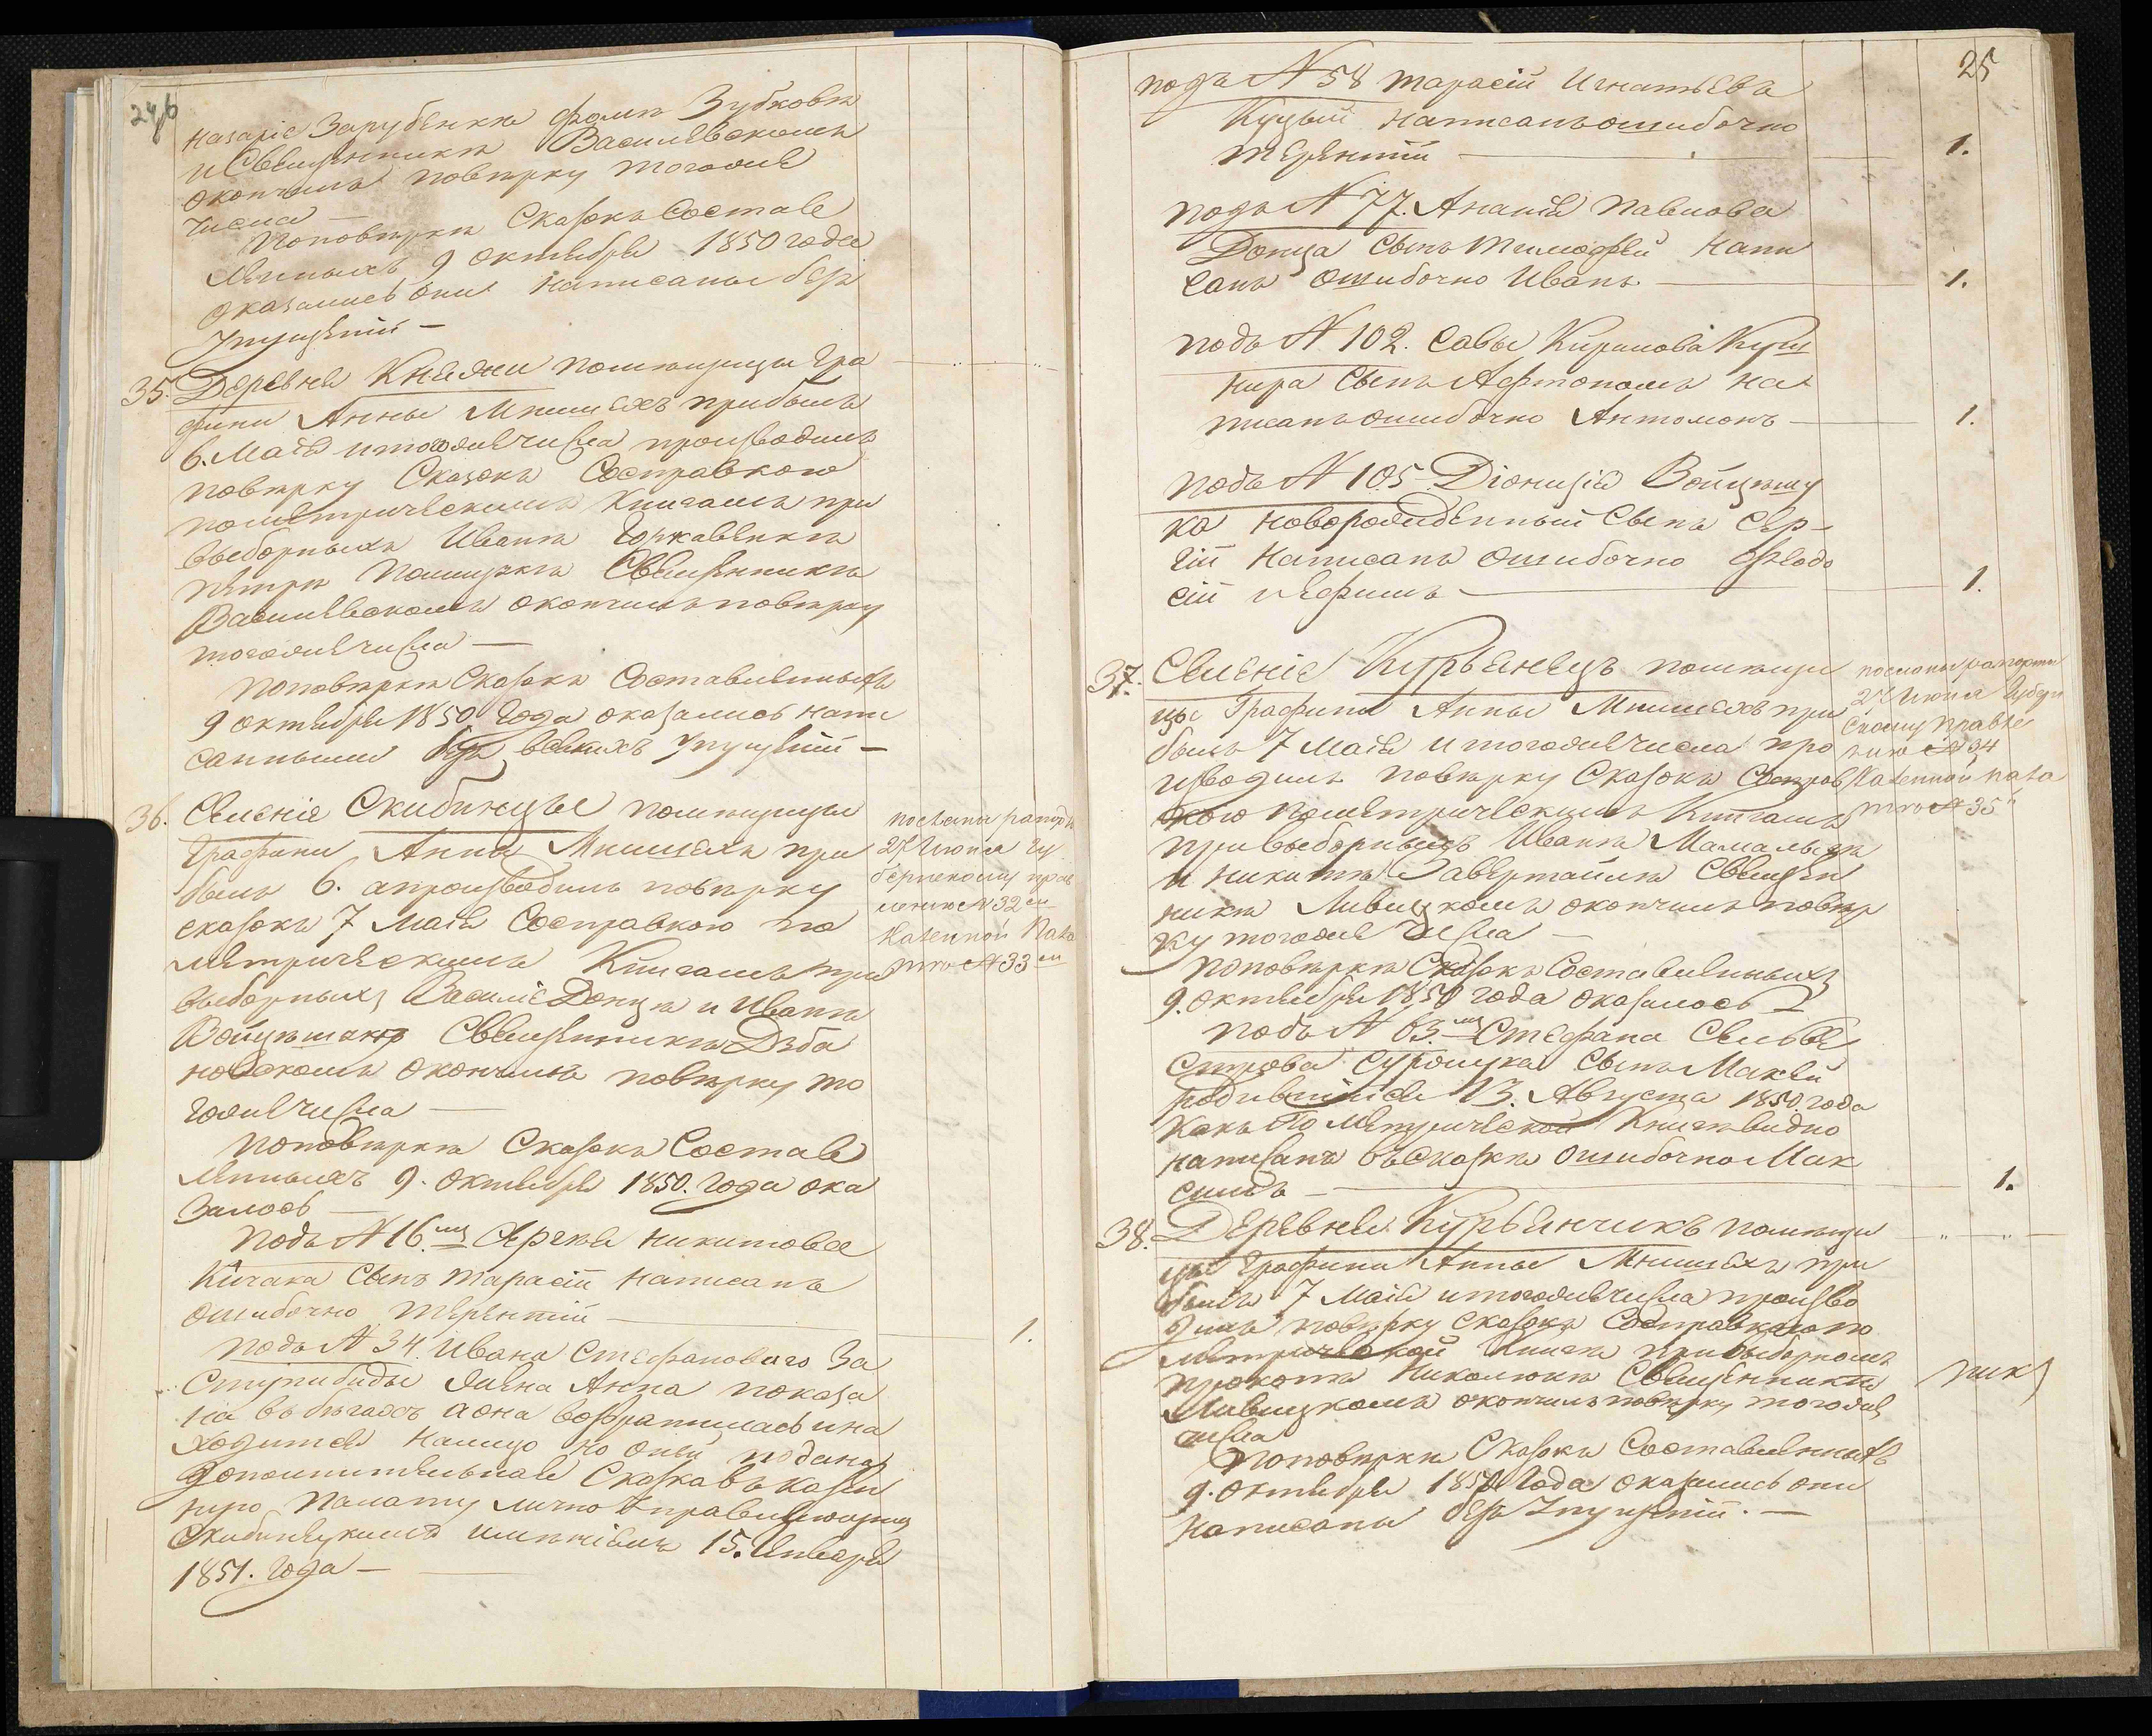 24 об
Назаріе Зарубенки Фомѣ Зубковѣ
и Священникѣ Василевскомъ
окончилъ повѣрку тогоже
числа —
По повѣркѣ Сказокъ Составе
ленныхъ 9 октября 1850 года
оказались они написаны безъ
упущеній —
35. Деревня Княжики помѣщицы Гра
фини Анны Мнишехъ прибылъ
6. Маія и тогоже числа производилъ
повѣрку Сказокъ Сосправкою
пометрическимъ книгамъ при
выборныхъ Иванѣ
Петрѣ Священникѣ
Василевскомъ окончилъ повѣрку
тогоже числа —
По повѣркѣ Сказокъ Составленныхъ
9 октября 1850 года оказались напи
санными безъ всякихъ упущеній —
36. Селеніе Скибинцы помѣщицы
Графини Анны Мнишехъ при
былъ 6. а производилъ повѣрку
сказокъ 7 Маія Сосправкою по
метрическимъ Книгамъ при
выборныхъ Василіе Донцѣ и Иванѣ
Войцѣшакѣ Священникѣ Дзба
новскомъ окончилъ повѣрку то
гоже числа —
По повѣркѣ Сказокъ Составе
ленныхъ 9. октября 1850. года ока
залось —
Подъ N 16.мъ Сергѣя Никитова
Кичака сынъ Тарасій написанъ
ошибочно Терентій — 1.
Подъ N 34. Ивана Стефановаго За
ступибиды жена Анна показа
на въ бѣгахъ а она возратилась и на
ходится налицо но оней подана
дополнительная Сказка въ казен
ную Палату лично Управляющимъ
Скибинецкимъ имѣніемъ 15. Января
1851. года —
посланы рапорты
27 Июня Гу
бернскому прав
ленію N 32 и
Казенной Пала
тѣ N 33 и
25
подъ N 58 Тарасій Игнатьева
Куцый написанъ ошибочно
Терентій — 1.
подъ N 77. Ананія Павлова
Донца Сынъ Тимофей напи
санъ ошибочно Иванъ — 1.
подъ N 102. Савы Кирилова Куш
нира Сынъ Афтономъ на
писанъ ошибочно Антомонъ — 1.
подъ N 105 Діонизія Войцѣшу
ка новорожденный Сынъ Сер-
гій написанъ ошибочно Феодо
сій и Ефимъ — 1.
37. Селеніе Курьянецъ помѣщи
цы Графини Анны Мнишехъ при
былъ 7 Маія и тогоже числа про
изводилъ повѣрку Сказокъ Сосправ
кою пометрическимъ Книгамъ
при выборныхъ Иванѣ Мамалыгѣ
и Никитѣ Завертайлѣ Священ
никѣ Ливицкомъ окончилъ повѣр
ку тогоже числа —
По повѣркѣ Сказокъ Составленныхъ
9. октября 1850 года оказалось
Подъ N 63.мъ Стефана Сельве
строва Сынъ Макей
родившійся 13. Августа 1850 года
какъ по метрической Книгѣ видно
написанъ въ сказкѣ ошибочно Мак
симъ — 1.
посланы рапорты
27 Июня Губерн
скому Правле
нію N 34
Казенной пала
тѣ N 35
38. Деревня Курьянчикъ помѣщи
цы Графини Анны Мнишехъ при
былъ 7 Маія и тогоже числа произво
дилъ повѣрку сказокъ Сосправкою по
метрической Книгѣ при выборномъ
Прокопѣ Николюкѣ Священникѣ
Ливицкомъ окончилъ повѣрку тогоже
числа
По повѣркѣ Сказокъ Составленныхъ
9. октября 1850 года оказались они
написаны безъ упущеній. —